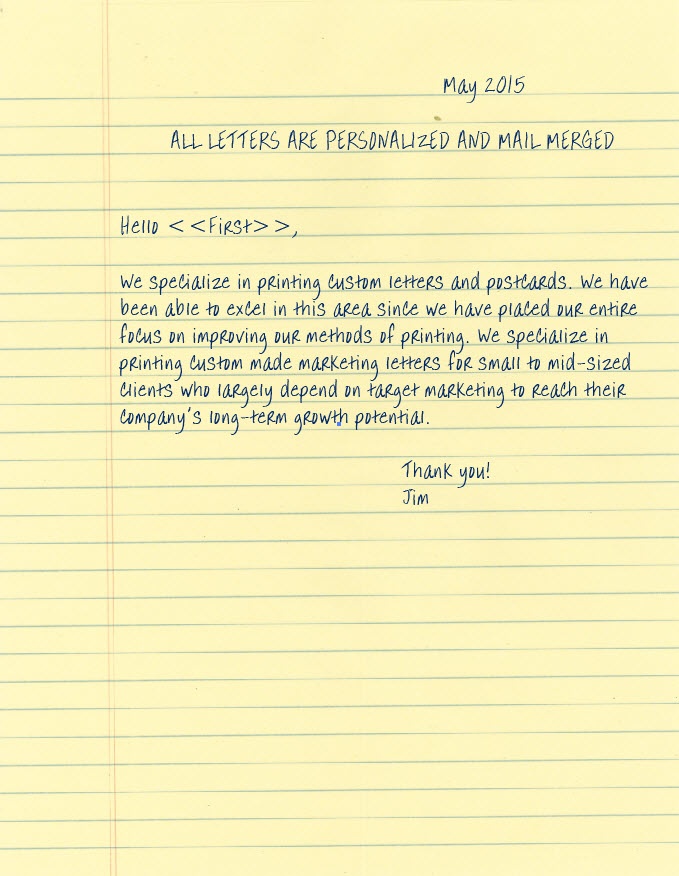 May 2015
ALL LETTERS ARE PERSONALIZED AND MAIL MERGED
Hello <<First>>,
We specialize in printing custom letters and postcards. We have
been able to excel in this area since we have placed our entire
focus on improving our methods of printing. We specialize in
printing custom made marketing letters for small to mid-sized
clients who largely depend on target marketing to reach their
company's long-term growth potential.
Thank you!
Jim